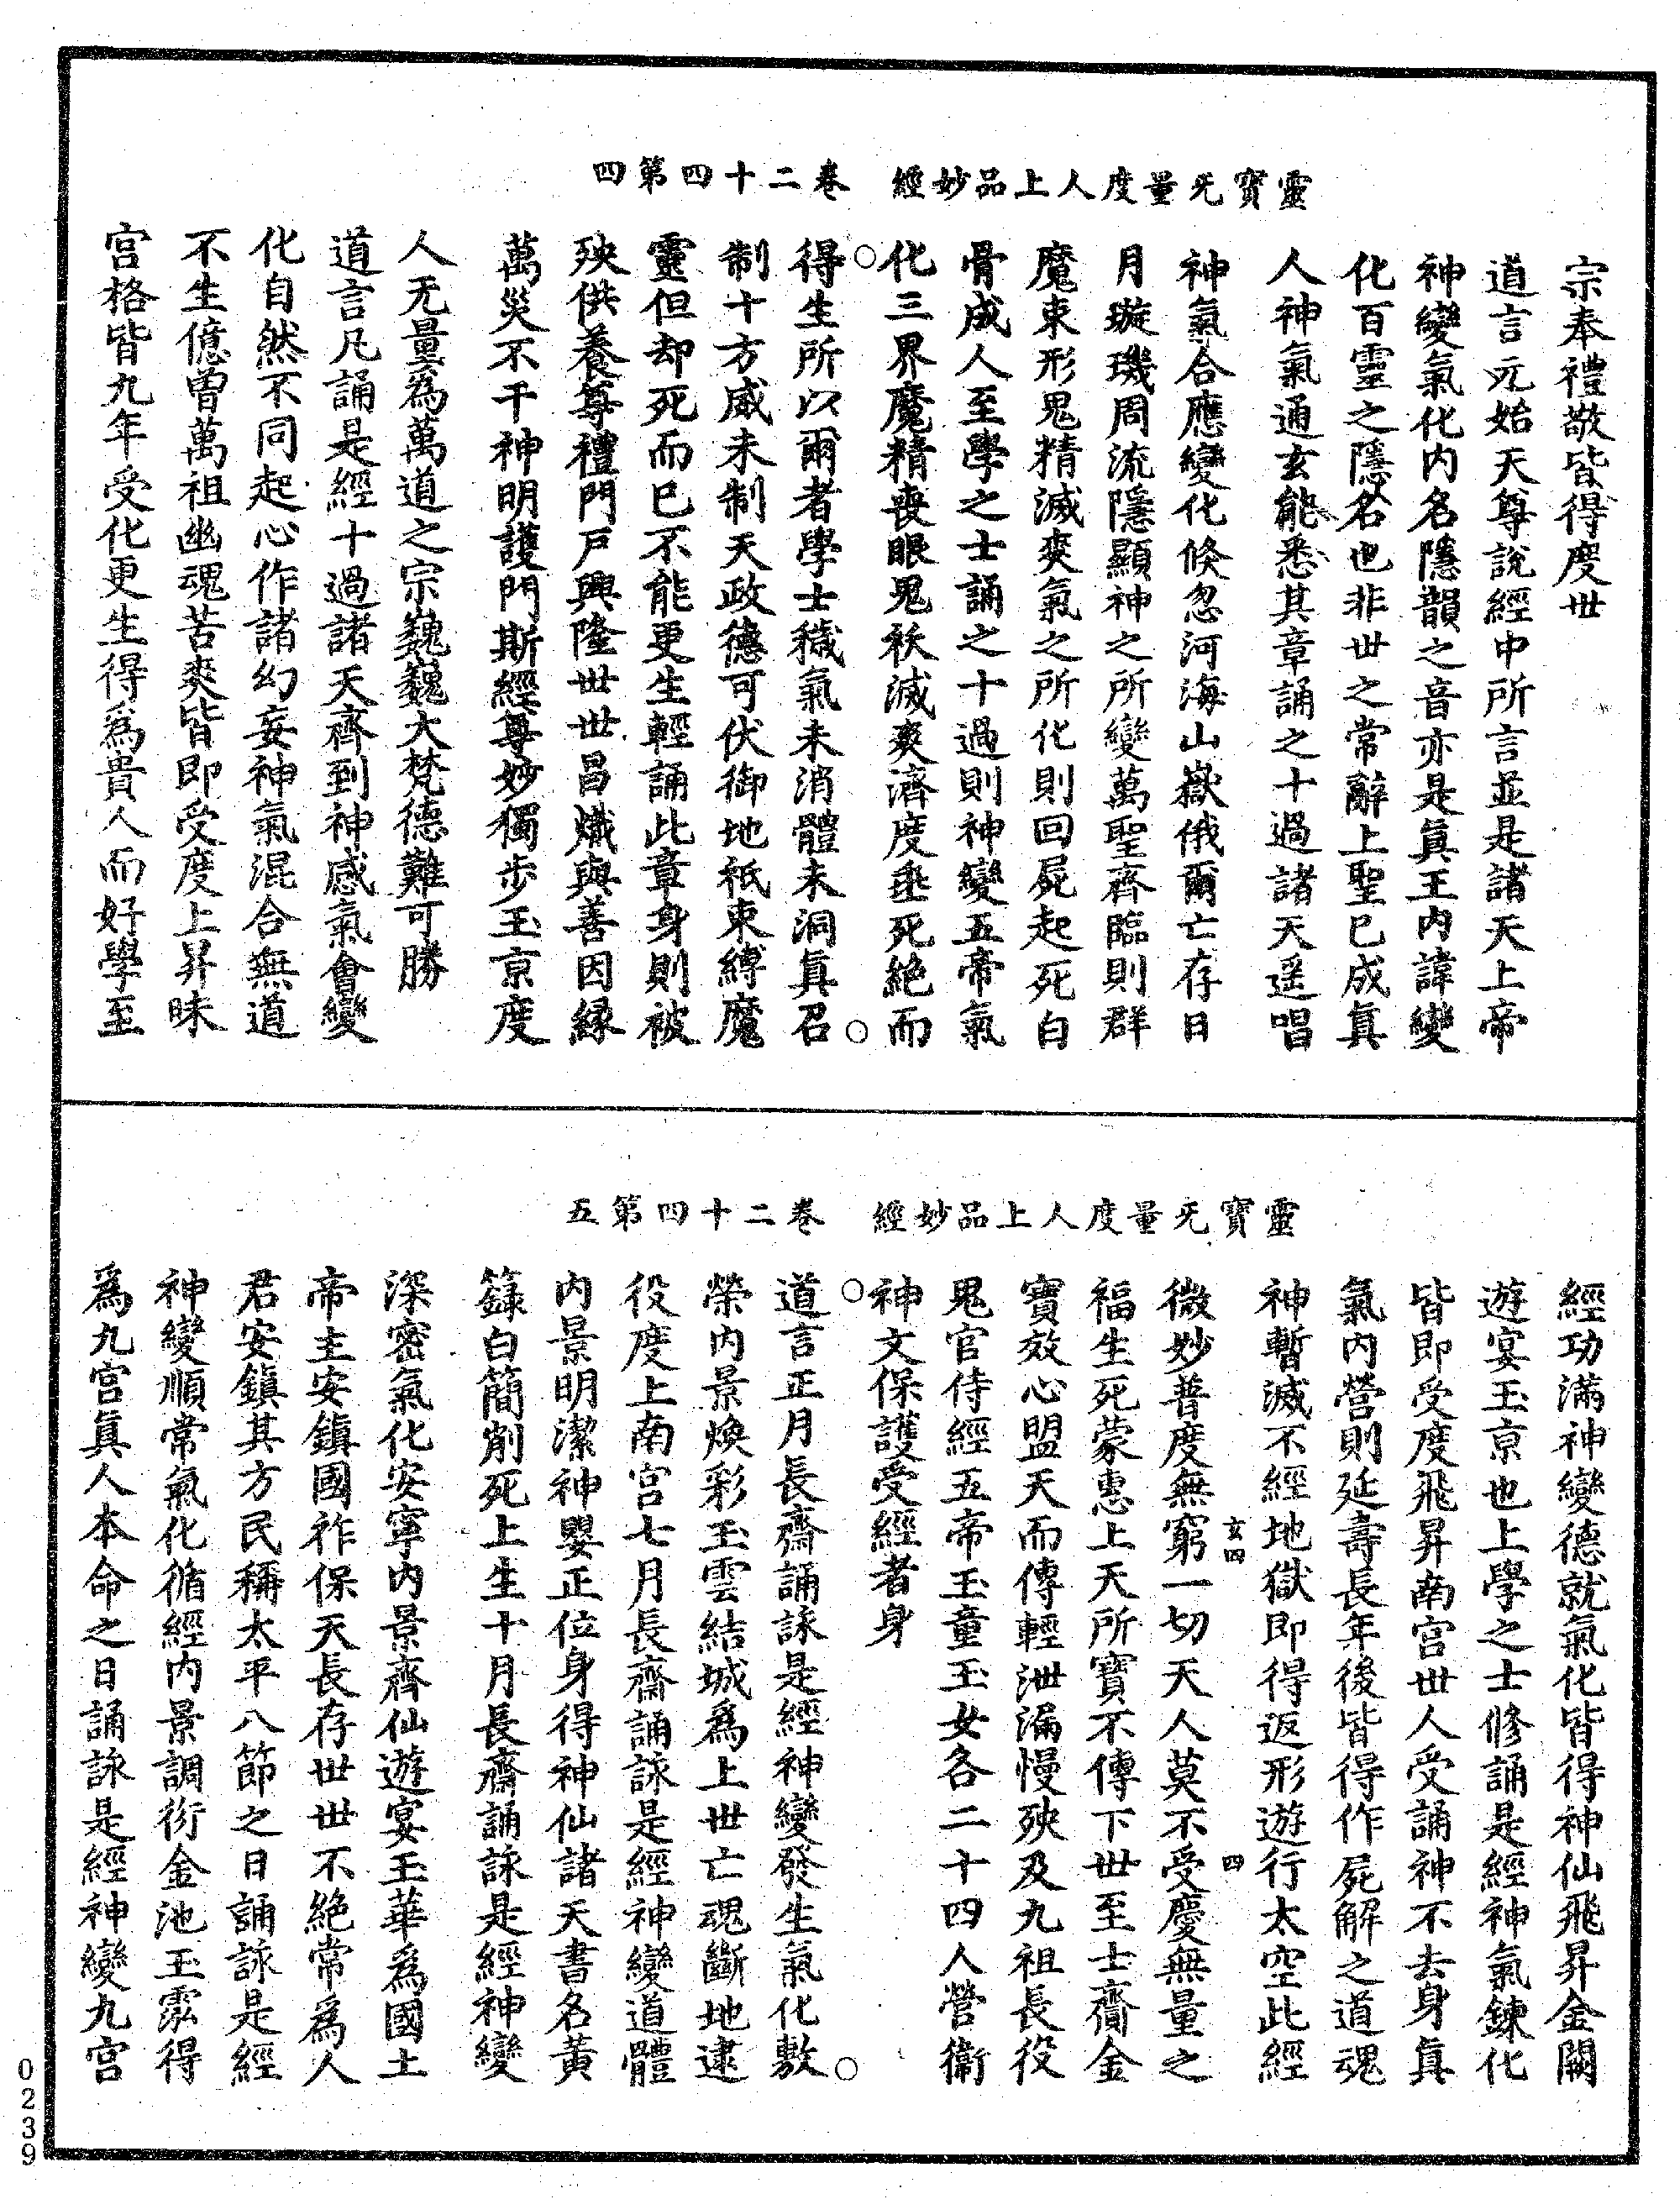 靈寶无量度人上品妙經　卷二十四第四
宗奉禮敬皆得度世
道言元始天尊說經中所言並是諸天上帝
神變氣化内名隱韻之音亦是眞王内諱變
化百靈之隱名也非世之常辭上聖已成眞
人神氣通玄能悉其章誦之十過諸天遥唱
神氣合應變化倏忽河海山嶽俄爾亡存日
月璇璣周流隱顯神之所變萬聖齊臨則群
魔束形鬼精滅爽氣之所化則回屍起死白
骨成人至學之士誦之十過則神變五帝氣
化三界魔精喪眼鬼祅滅爽濟度垂死絶而
得生所以爾者學士穢氣未消體未洞眞召
制十方威未制天政德可伏御地祇束縛魔
靈但却死而已不能更生輕誦此章身則被
殃供養尊禮門戸興隆世世昌熾與善因緣
萬災不干神明護門斯經尊妙獨步玉京度
人无量爲萬道之宗巍巍大梵德難可勝
道言凡誦是經十過諸天齊到神感氣會變
化自然不同起心作諸幻妄神氣混合無道
不生億曾萬祖幽魂苦爽皆即受度上昇昧
宫格皆九年受化更生得爲貴人而好學至
靈寶无量度人上品妙經　卷二十四第五
經功滿神變德就氣化皆得神仙飛昇金闕
遊宴玉京也上學之士修誦是經神氣鍊化
皆即受度飛昇南宫世人受誦神不去身眞
氣内營則延壽長年後皆得作屍解之道魂
神暫滅不經地獄即得返形遊行太空此經
玄四　四
微妙普度無窮一切天人莫不受慶無量之
福生死蒙惠上天所寶不傳下世至士齎金
寶效心盟天而傳輕泄漏慢殃及九祖長役
鬼官侍經五帝玉童玉女各二十四人營衞
神文保護受經者身
道言正月長齋誦詠是經神變發生氣化敷
榮内景煥彩玉雲結城爲上世亡魂斷地逮
役度上南宫七月長齋誦詠是經神變道體
内景明潔神嬰正位身得神仙諸天書名黃
籙白簡削死上生十月長齋誦詠是經神變
深密氣化安寧内景齊仙遊宴玉華爲國土
帝主安鎮國祚保天長存世世不絶常爲人
君安鎮其方民稱太平八節之日誦詠是經
神變順常氣化循經内景調衍金池玉霐得
爲九宫眞人本命之日誦詠是經神變九宫
0239